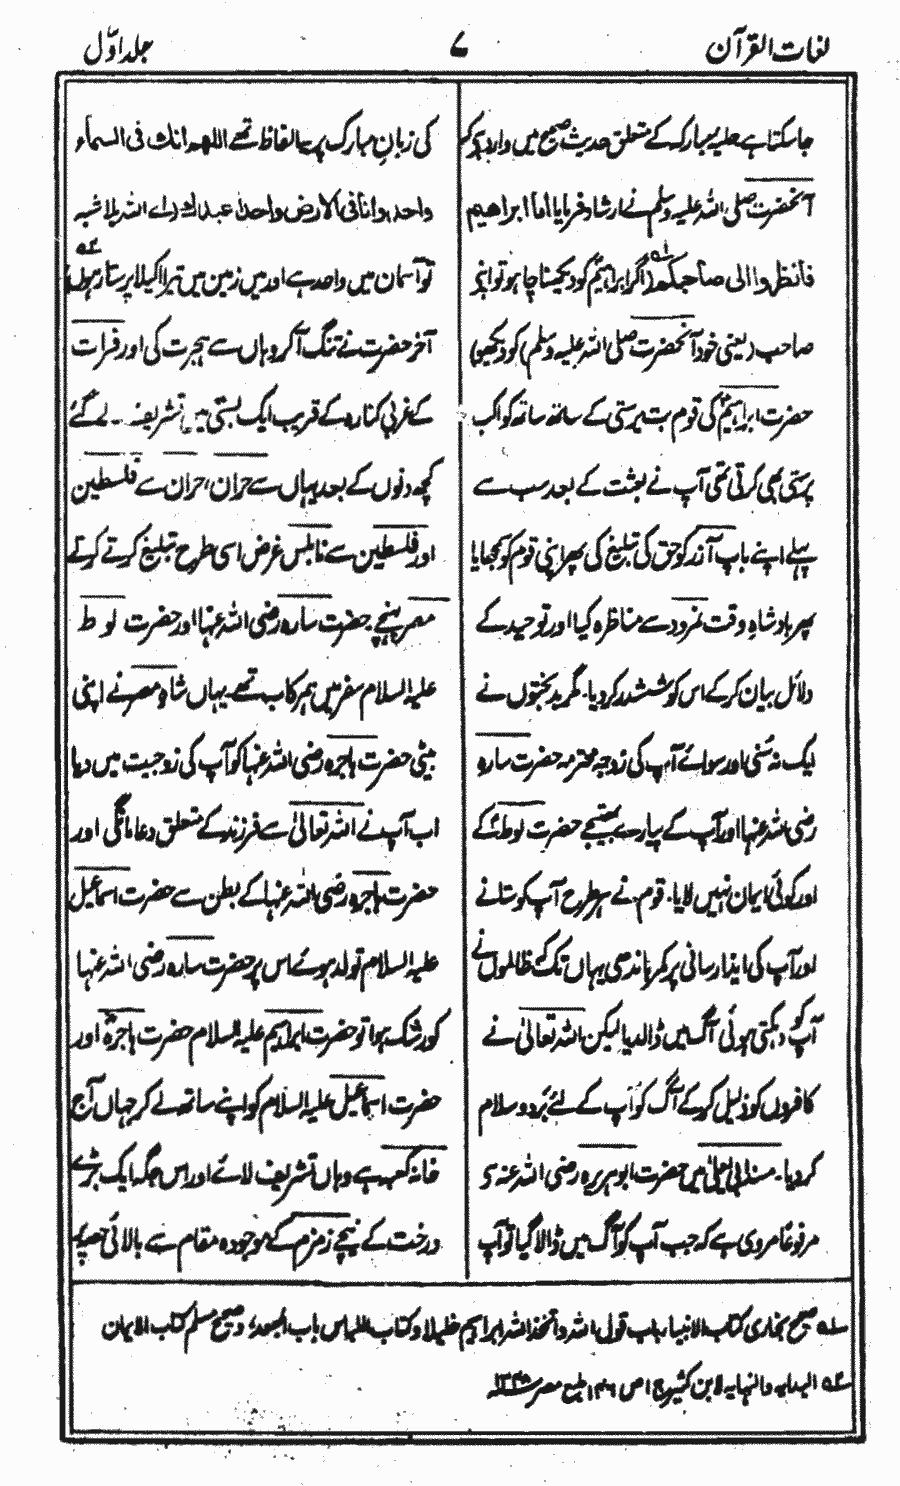 لغات القرآن
۷
جلد اوّل
جا سکتا ہے حلیہ مبارک کے متعلق حدیث صحیح میں وارد ہے کہ
آنحضرت صلی اللہ علیہ وسلم نے ارشاد فرمایا اما ابراھیم
فانظروا الی صاحبکم (اگر ابراہیمؑ کو دیکھنا چاہو تو اپنے
صاحب (یعنی خود آنحضرت صلی اللہ علیہ وسلم) کو دیکھو)
حضرت ابراہیمؑ کی قوم بت پرستی کے ساتھ ساتھ کواکب
پرستی بھی کرتی تھی آپ نے بعثت کے بعد سب سے
پہلے اپنے باپ آزر کو حق کی تبلیغ کی پھر اپنی قوم کو سمجھایا
پھر بادشاہِ وقت نمرود سے مناظرہ کیا اور توحید کے
دلائل بیان کر کے اس کو ششدر کر دیا۔ مگر بدبختوں نے
ایک نہ سُنی اور سوائے آپ کی زوجہ محترمہ حضرت سارہ
رضی اللہ عنہا اور آپ کے پیارے بھتیجے حضرت لوطؑ کے
اور کوئی ایمان نہیں لایا۔ قوم نے ہر طرح آپ کو ستانے
اور آپ کی ایذا رسانی پر کمر باندھی یہاں تک کہ ظالموں نے
آپ کو دہکتی ہوئی آگ میں ڈالدیا لیکن اللہ تعالیٰ نے
کافروں کو ذلیل کر کے آگ کو آپ کے لئے بَرد و سلام
کر دیا۔ مسند ابی یعلیٰ میں حضرت ابو ہریرہ رضی اللہ عنہ سے
مرفوعًا مروی ہے کہ جب آپ کو آگ میں ڈالا گیا تو آپ
کی زبانِ مبارک پر یہ الفاظ تھے اللھم انك فی السماء
واحد وانا فی الارض واحد اعبدك (اے اللہ بلا شبہ
تو آسمان میں واحد ہے اور میں زمین میں تیرا اکیلا پرستار ہوں)
آخر حضرت نے تنگ آ کر وہاں سے ہجرت کی اور فرات
کے غربی کنارہ کے قریب ایک بستی میں تشریف لے گئے
کچھ دنوں کے بعد یہاں سے حران، حران سے فلسطین
اور فلسطین سے نابلس غرض اسی طرح تبلیغ کرتے کرتے
مصر پہنچے۔ حضرت سارہ رضی اللہ عنہا اور حضرت لوط
علیہ السلام سفر میں ہمرکاب تھے۔ یہاں شاہِ مصر نے اپنی
بیٹی حضرت ہاجرہ رضی اللہ عنہا کو آپ کی زوجیت میں دیا
اب آپ نے اللہ تعالیٰ سے فرزند کے متعلق دعا مانگی اور
حضرت ہاجرہ رضی اللہ عنہا کے بطن سے حضرت اسماعیل
علیہ السلام تولد ہوئے اس پر حضرت سارہ رضی اللہ عنہا
کو رشک ہوا تو حضرت ابراہیم علیہ السلام حضرت ہاجرہؓ اور
حضرت اسماعیل علیہ السلام کو اپنے ساتھ لے کر جہاں آج
خانہ کعبہ ہے وہاں تشریف لائے اور اس جگہ ایک بڑے
درخت کے نیچے زمزم کے موجودہ مقام سے بالائی حصہ پر
۱ صحیح بخاری کتاب الانبیاء باب قول اللہ واتخذ اللہ ابراہیم خلیلا و کتاب اللباس باب الجعد، وصحیح مسلم کتاب الایمان
۲ البدایہ والنہایہ لابن کثیر ج ۱ ص ۱۴۶ طبع مصر